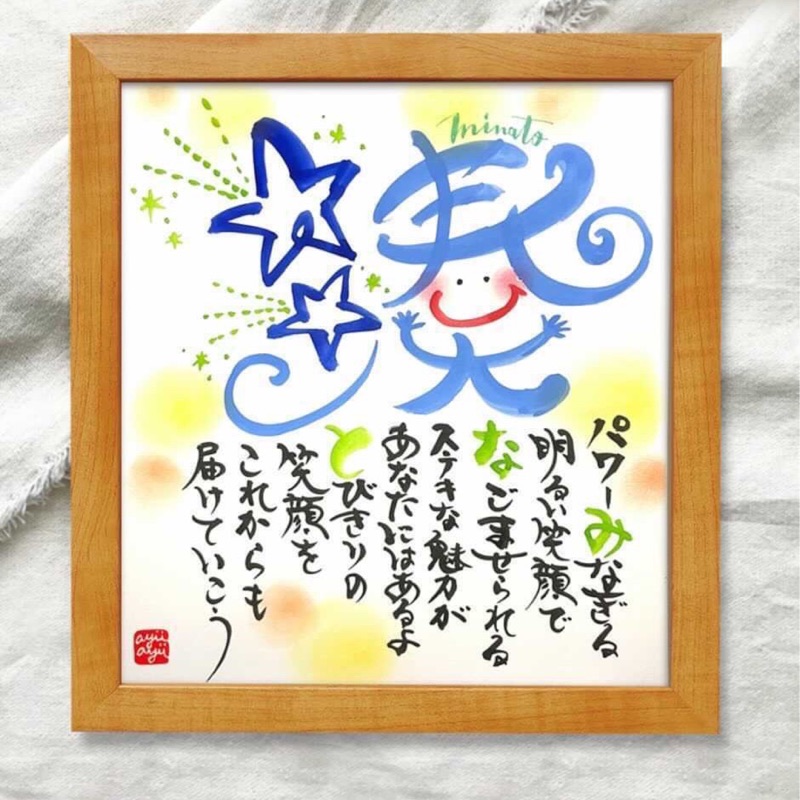 minato
湊
パワーみなぎる
明るい笑顔で
なごませられる
ステキな魅力が
あなたにはあるよ
とびきりの
笑顔を
これからも
届けていこう